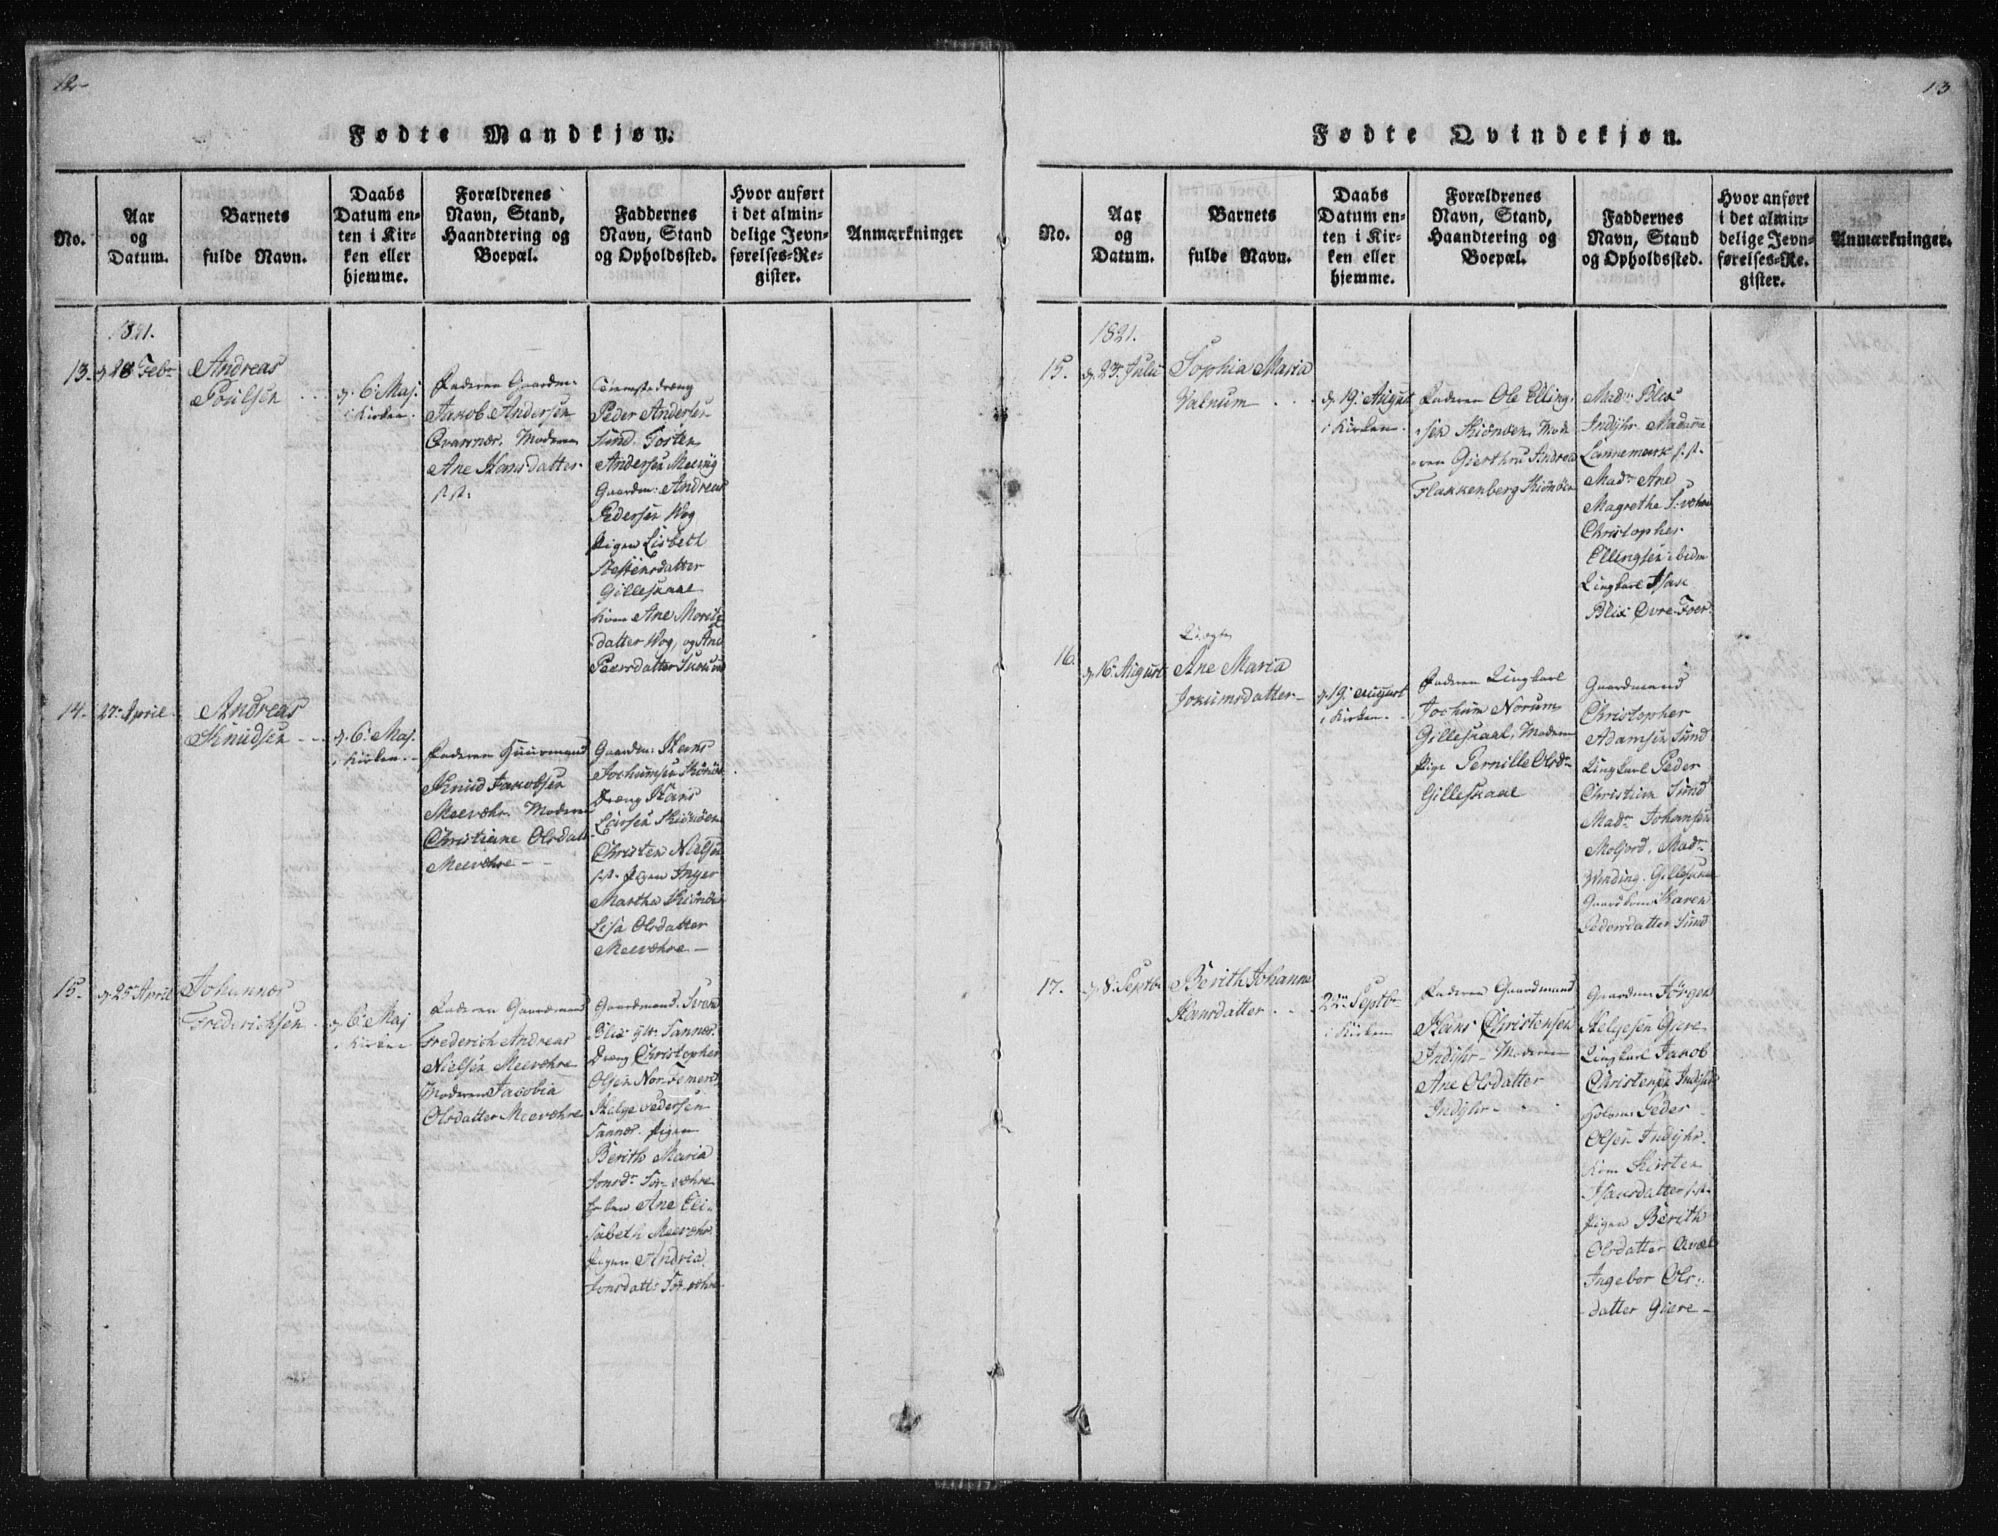 12
Fødte Mandkjøn.
No.
Aar
og
Datum.
Barnets
fulde Navn.
Daabs
Datum en-
ten i Kir-
ken eller
hjemme.
Forældrenes
Navn, Stand,
Haandtering og
Boepæl.
Faddernes
Navn, Stand
og Opholdssted.
Hvor anført
i det almin-
delige Jevn-
førelses-Re-
gister.
Anmærkninger
1821.
13.
d. 28 Febr
Andreas
Poulsen
d. 6 Maj
i Kirken.
Faderen Gaardm.
Jakob Andersen
Qvarnæs. Moderen
Ane Hansdatter
s. st.
Tienestedreng
Peder Andersen
Sund. Torsten
Andersen
Gaardm: Andreas
Pedersen Wog
Pigen Lisbeth
Gilleskaal
Kone Ane Moritz
datter Wog, og Ane
Pedersdatter
14.
27. April
Andreas
Knudsen
d. 6. Maj.
i Kirken.
Faderen Huusmand
Knud Jakobsen
Meevæhr. Moderen
Christiane Olsdatt
Meevæhre
Gaardm: Hans
Jochumsen
Dreng Hans
Larsen
Christen Nielsen
s. st. Pigen Inger
Martha
Lisa Olsdatter
Meevæhre
15.
d. 25 April
Johannes
Frederichsen
d. 6. Maj
i Kirken
Faderen Gaardmand
Frederich Andreas
Nielsen Meevæhre
Moderen Jacobia
Olsdatter Meevæhre
Gaardmand Svend
Blix
Dreng Christopher
Olsen
Helge Pedersen
Pigen
Berith Maria
Jonsdr
Ane Eli-
sabeth Meevæhr.
Pigen Andria
Jonsdatter
13
Fødte Qvindekjøn.
No.
Aar
og
Datum.
Barnets
fulde Navn.
Daabs
Datum en-
ten i Kir-
ken eller
hjemme.
Forældrenes
Navn, Stand,
Haandtering og
Boepæl.
Faddernes
Navn, Stand
og Opholdssted.
Hvor anført
i det almin-
delige Jevn-
førelses-Re-
gister.
Anmærkninger.
1821.
15.
d. 23. Julii
Sophia Maria
Valnum
d. 19. August
i Kirken.
Faderen Ole Elling-
sen
Gierthru Andrea
Flakkenberg
Madr. Blix
Indijhr. Madame
s. st.
Madr Ane
Magrethe
Christopher
Ellingsen
Isac
Blix Øvre
16.
d. 16. August
Uægte
Ane Maria
Jokumsdatter
d. 19. August
i Kirken.
Faderen Ungkarl
Jochum Norum
Gilleskaal. Moderen
Pige Pernille Olsdr
Gilleskaal
Gaardmand
Christopher
Adamsen Sund
Ungkarl Peder
Christian Sund
Madr Johansen
Moljord. Madr
Winding. Gilleskaal
Gaardkone Karen
Pedersdatter Sund
17.
d. 8. Septbr
Berith Johanna
Hansdatter
22de Septbr
i Kirken
Faderen Gaardmand
Hans Christensen
Indijhr Moderen
Ane Olsdatter
Indijhr
Gaardm: Jørgen
Helgesen Giere
Ungkarl Jakob
Christensen Indijhr
Peder
Olsen Indijhr.
Kone Kirsten
Hansdatter s. st.
Pigen Berith
Olsdatter
Ingebor Ols-
datter Giere